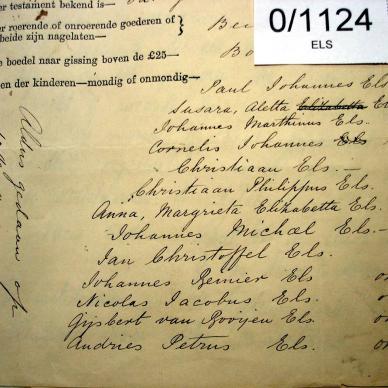 er testament bekend is—
0/1124
ELS
er roerende of onroerende goederen of }
beide zijn nagelaten—
r boedel naar gissing boven de £25—
en der kinderen—mondig of onmondig—
Paul Johannes Els
Susara, Aletta Elizabetta Els
Johannes Marthinus Els.
Cornelis Johannes Els
Christiaan Els.—
Christiaan Philippus Els.
Anna, Margrieta Elizabetta Els.
Johannes Michael Els.—
Jan Christoffel Els.
Johannes Renier Els
Nicolas Jacobus Els.
Gijsbert van Rooijen Els.
Andries Petrus Els.
Aldus gedaan op